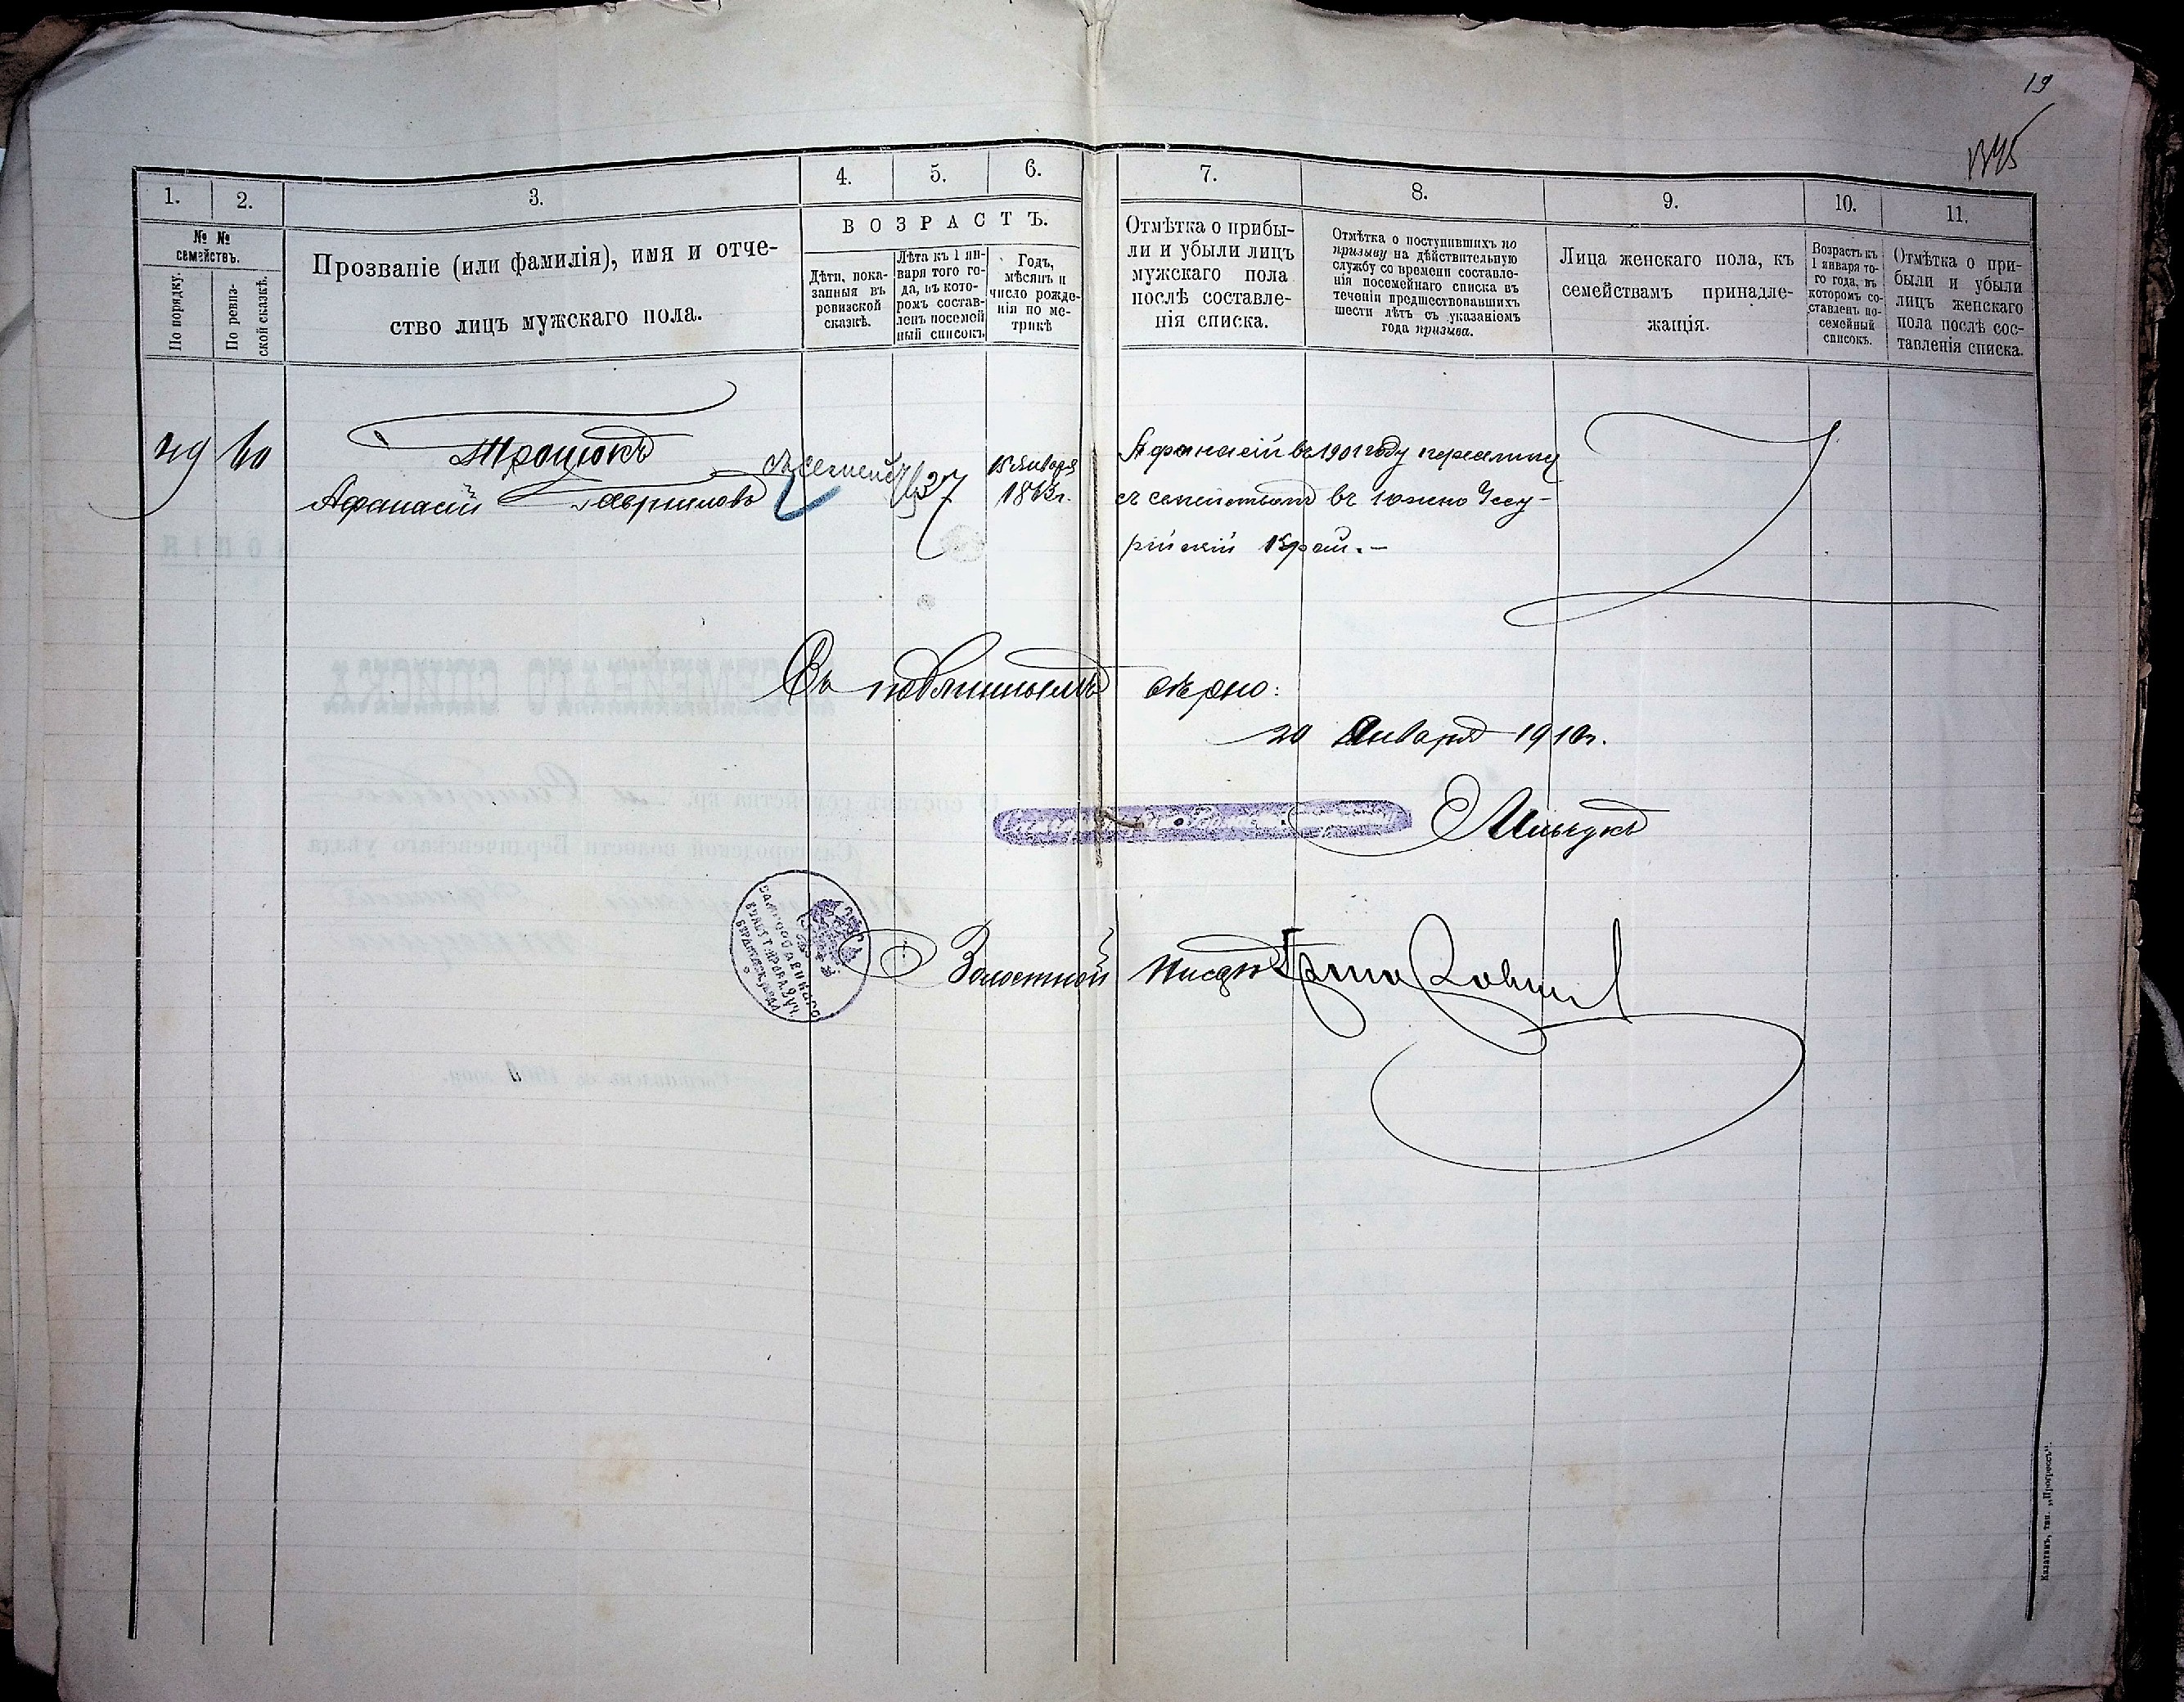 19
1.
2.
3.
4.
5.
6.
7.
8.
9.
10.
11.
№ №
семействъ.
По порядку.
По ревиз-
ской сказкѣ.
Прозваніе (или фамилія), имя и отче-
ство лицъ мужскаго пола.
ВОЗРАСТЪ.
Дѣти, пока-
занныя въ
ревизской
сказкѣ.
Лѣта къ 1 ян-
варя того го-
да, въ кото-
ромъ состав-
ленъ посемей
ный списокъ
Годъ,
мѣсяцъ и
число рожде-
нія по ме-
трикѣ
Отмѣтка о прибы-
ли и убыли лицъ
мужскаго пола
послѣ составле-
нія списка.
Отмѣтка о поступившихъ по
призыву на дѣйствительную
службу со времени составле-
нія посемейнаго списка въ
теченіи предшествовавшихъ
шести лѣтъ съ указаніемъ
года призыва.
Лица женскаго пола, къ
семействамъ принадле-
жащія.
Возрастъ къ
1 января то-
го года, въ
которомъ со-
ставленъ по-
семейный
списокъ.
Отмѣтка о при-
были и убыли
лицъ женскаго
пола послѣ сос-
тавленія списка.
Троцюкъ
Афанасій Гавриловъ
съ семьей
37
15 Января
1863г.
Афанасій въ 1901 году
съ семействомъ въ Южно Уссу-
рійскій Край.-
Съ подлиннымъ вѣрно:
20 Января 1910г.
Волостной Писарь
Казатинъ, тип. „Прогрессъ".